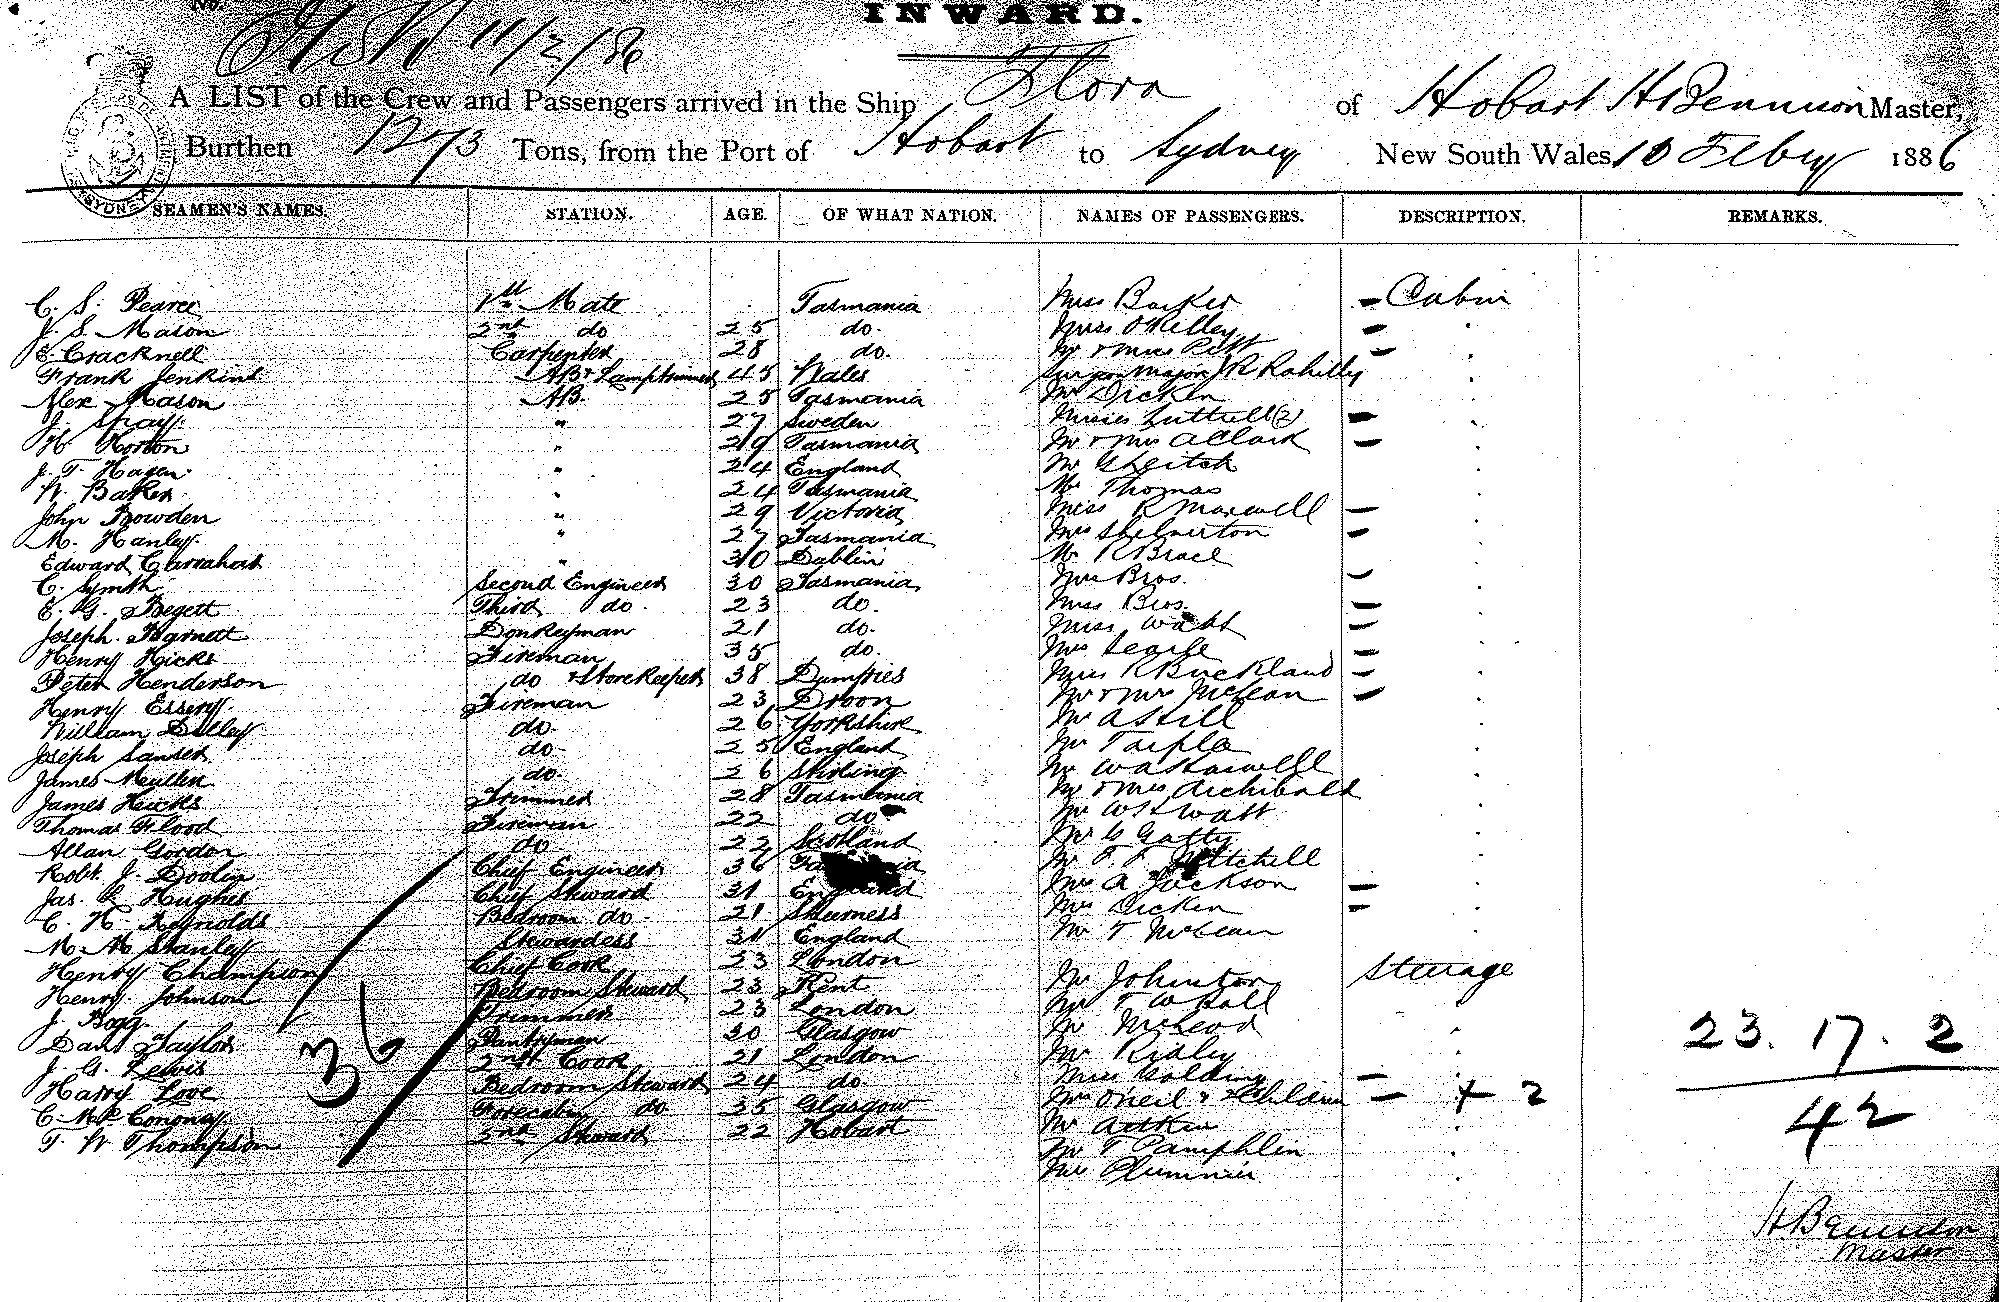 No.
INWARD.
11/2/86
A LIST of the Crew and Passengers arrived in the Ship Flora of Hobart H Bennison Master,
Burthen 1273 Tons, from the Port of Hobart to Sydney New South Wales, 10 Febry 1886
SYDNEY
SEAMEN'S NAMES. STATION. AGE. OF WHAT NATION. NAMES OF PASSENGERS. DESCRIPTION. REMARKS.
C. S. Pearce 1st Mate Tasmania Miss Barker - Cabin
J. S. Mason 2nd do 25 do. Miss O'Kelley -
E. Cracknell Carpenter 28 do. Mr & Mrs Pitt -
Frank Jenkins AB & Lamptrimmer 45 Wales Surgeon Major J R Rahilly
Alex Mason AB. 25 Tasmania Mr Dicken
J. Gray " 27 Sweden Misses Luttrell (2) -
H Horton " 29 Tasmania Mr & Mrs A Clark -
J. T. Hagen " 24 England Mr
W. Baker " 24 Tasmania Mr Thomas
John Bowden " 29 Victoria Miss R Maxwell -
M. Hanley " 27 Tasmania Mrs -
Edward Clarrahat " 30 Dublin Mr R
C. Symth Second Engineer 30 Tasmania Mrs Bros. -
E. G. Begett Third do. 23 do. Miss Bros. -
Joseph Barnett Donkeyman 21 do. Miss Watt -
Henry Hicks Fireman 35 do. Mrs Searle -
Peter Henderson do & Storekeeper 38 Dumfries Miss R Buckland -
Henry Essery Fireman 23 Mr & Mrs McLean -
William Dilley do. 26 Yorkshire Mr
Joseph Sander do. 25 England Mr
James Meullen do. 26 Stirling Mr
James Hicks Trimmer 28 Tasmania Mr & Mrs Archibald
Thomas Flood Fireman 22 do Mr W H Watt
Allan Gordon do 22 Scotland Mr G Gatty
Robt. J. Doolin Chief Engineer 36 Tasmania Mr T. F. Mitchell
Jas. L Hughes Chief Steward 31 England Mrs A Jackson -
C. H. Reynolds Bedroom do. 21 Sheerness Mrs Dicken -
M. A. Stanley Stewardess 31 England Mr T McLean
Henry Champion Chief Cook 23 London
Henry Johnson Bedroom Steward 23 Kent Mr Johnston Steerage
J. Bogg. Trimmer 23 London Mr T W Hall
Danl Taylor Pantryman 30 Glasgow Mr McLeod
J. G. Lewis 2nd Cook 21 London Mr Ridley
Harry Love Bedroom Steward 24 do. Miss Golding -
C. McConony Forecabin do 35 Glasgow Mrs O'Neil & 2 Children - + 2
T. W Thompson 2nd Steward 22 Hobart Mr Aitken
Mr T Pamphlin
Mr Plummer
36
23. 17. 2
42
H Bennison
Master